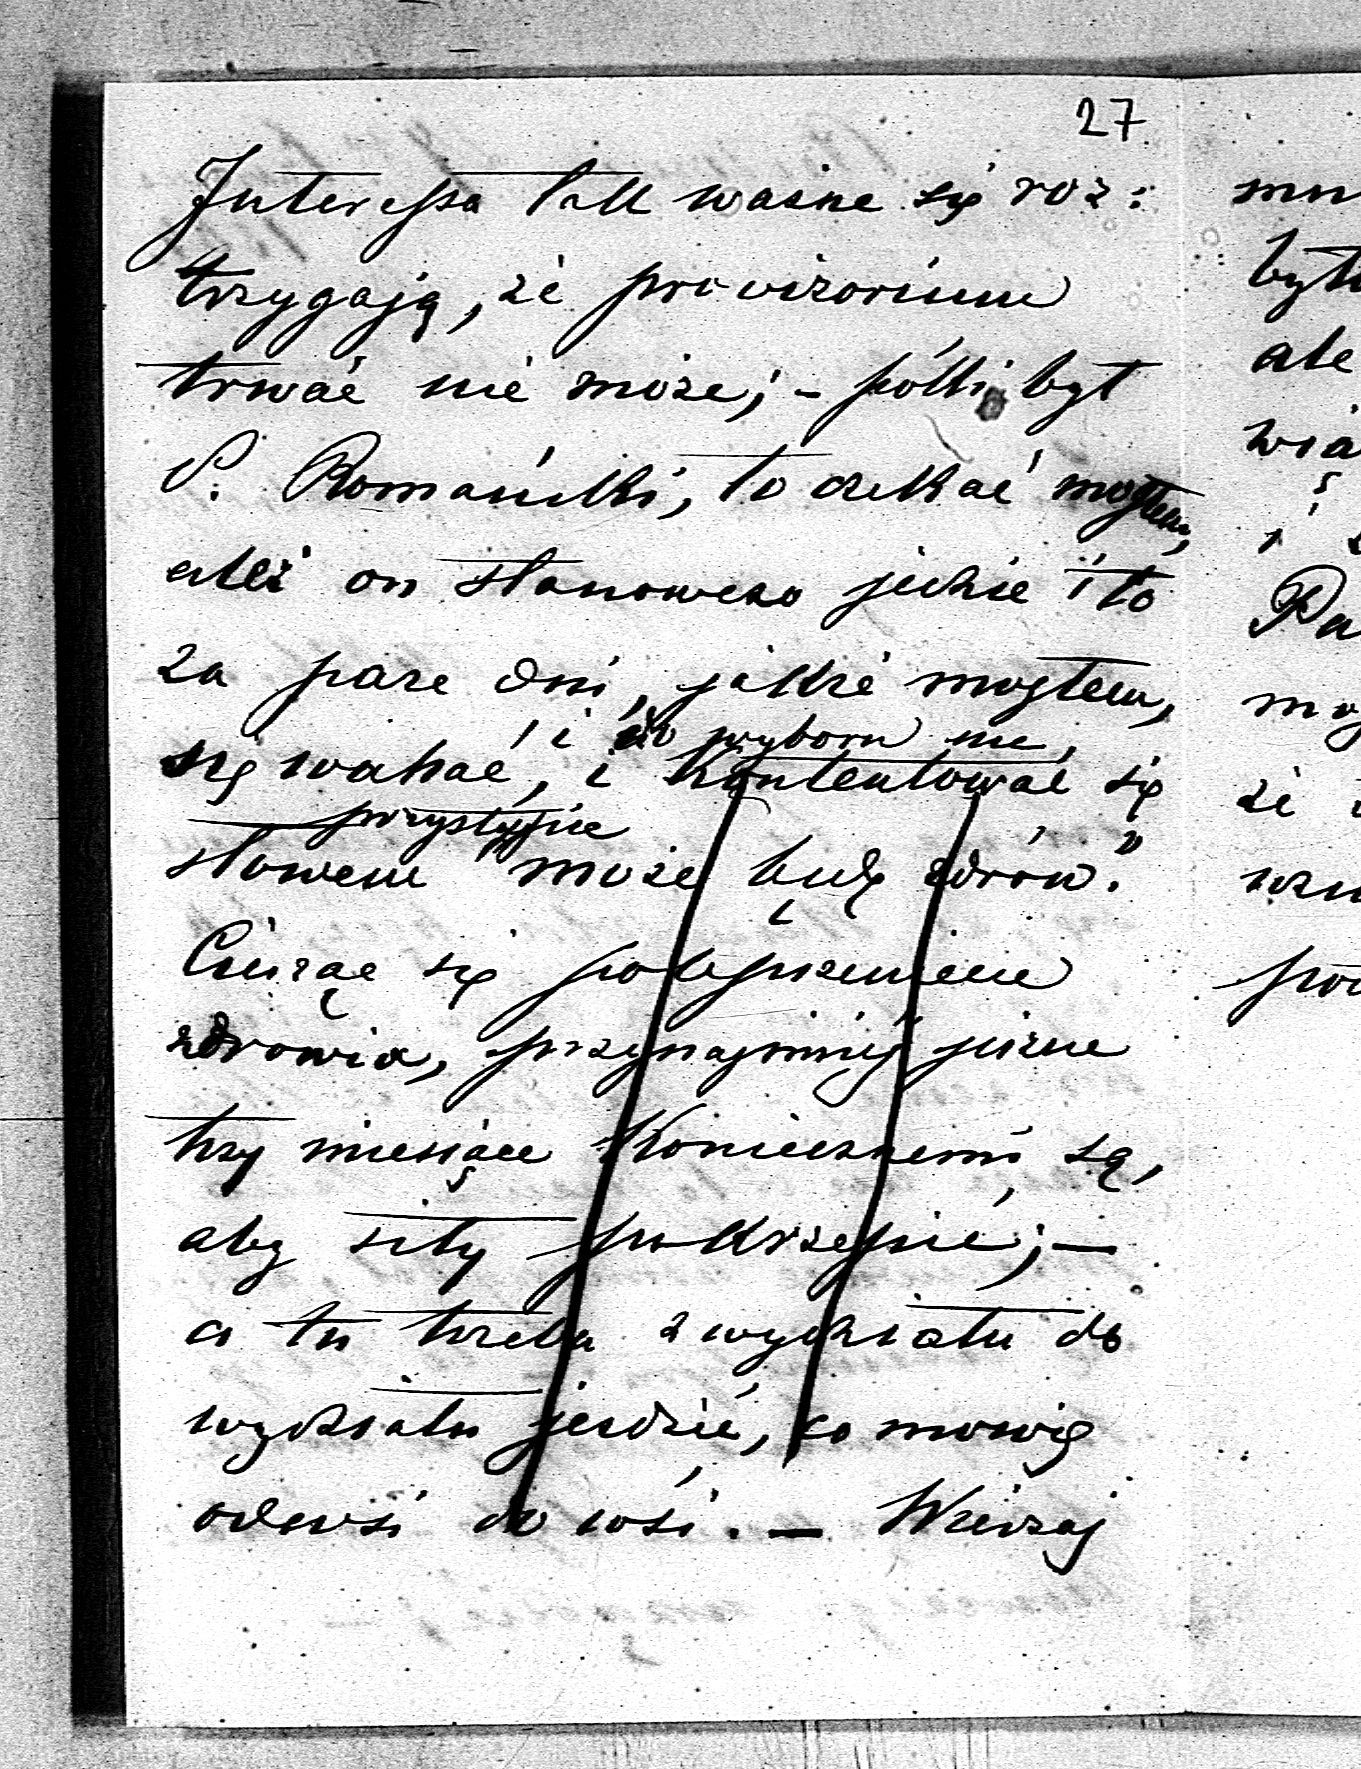 27
Interessa tak ważne się roz:
trzygają, że provizorium
trwać nie może; – póki był
P. Romański, to czekać mogłem,
ależ on stanowczo jedzie i to
za parę dni, jakże mogłem,
się wahać, i do wyboru nie
i kontentować się
przystąpić
słowem "może będę zdrów."
Ciesząc się polepszeniem
zdrowia, przynajmniej jeszcze
trzy miesiące koniecznemi są,
aby siły pokrzepić; –
a tu trzeba z wydziału do
wydziału jeździć, co mowię
odewsi do wsi. – Wierzaj
było
ale
wią
i
Pa
że